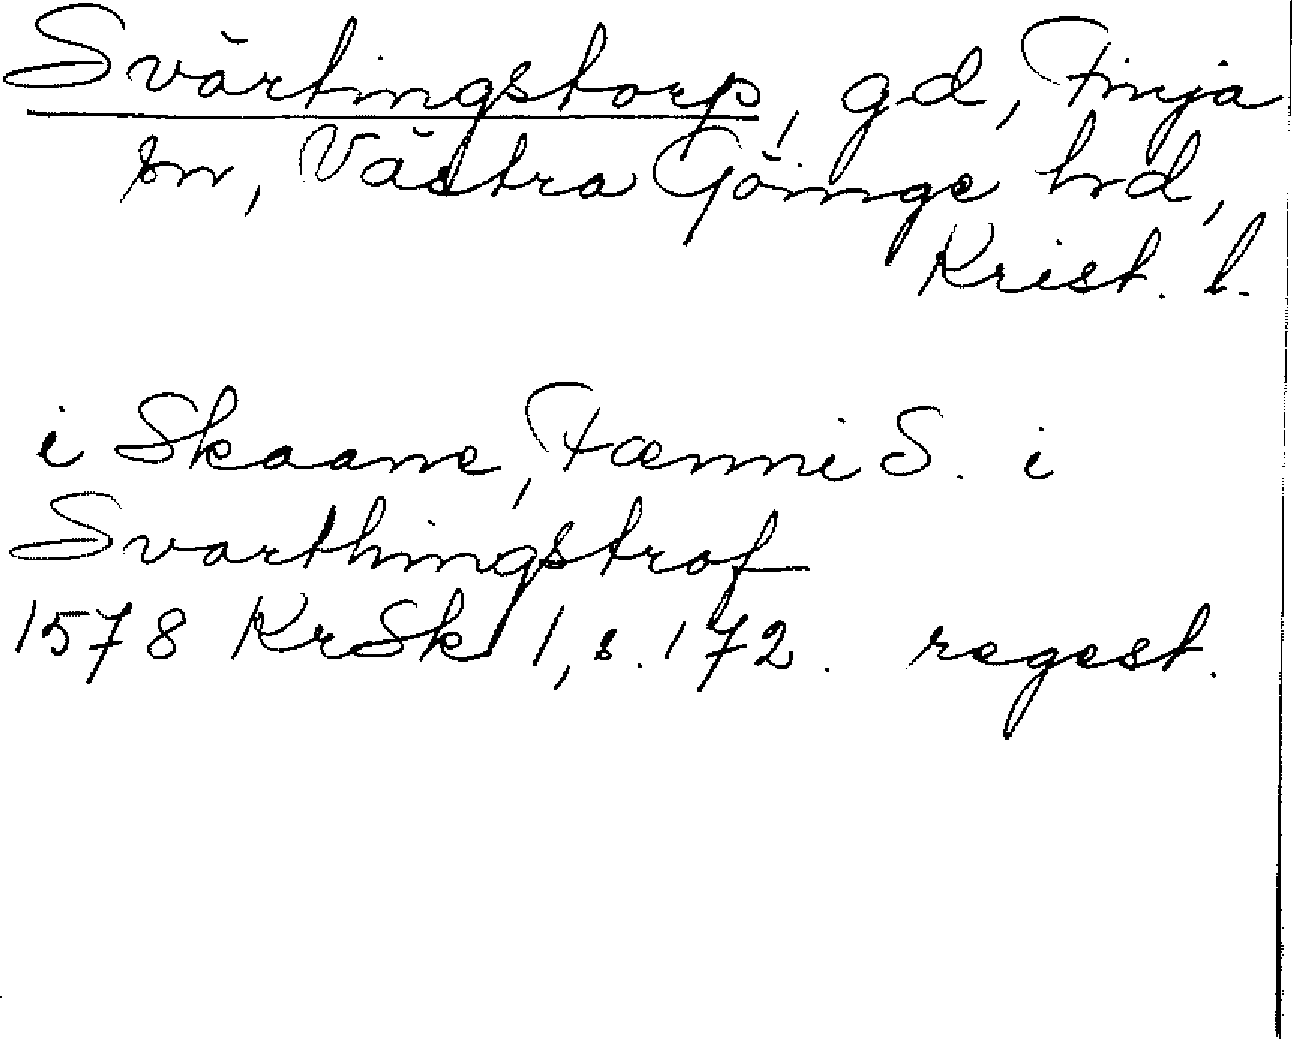 Svärtingstorp, gd, Finja
sn, Västra Göinge hrd,
Krist. l.
i Skaane, Fænni S. i
Svarthingstrof
1578 KrSk 1, s. 172. regest.